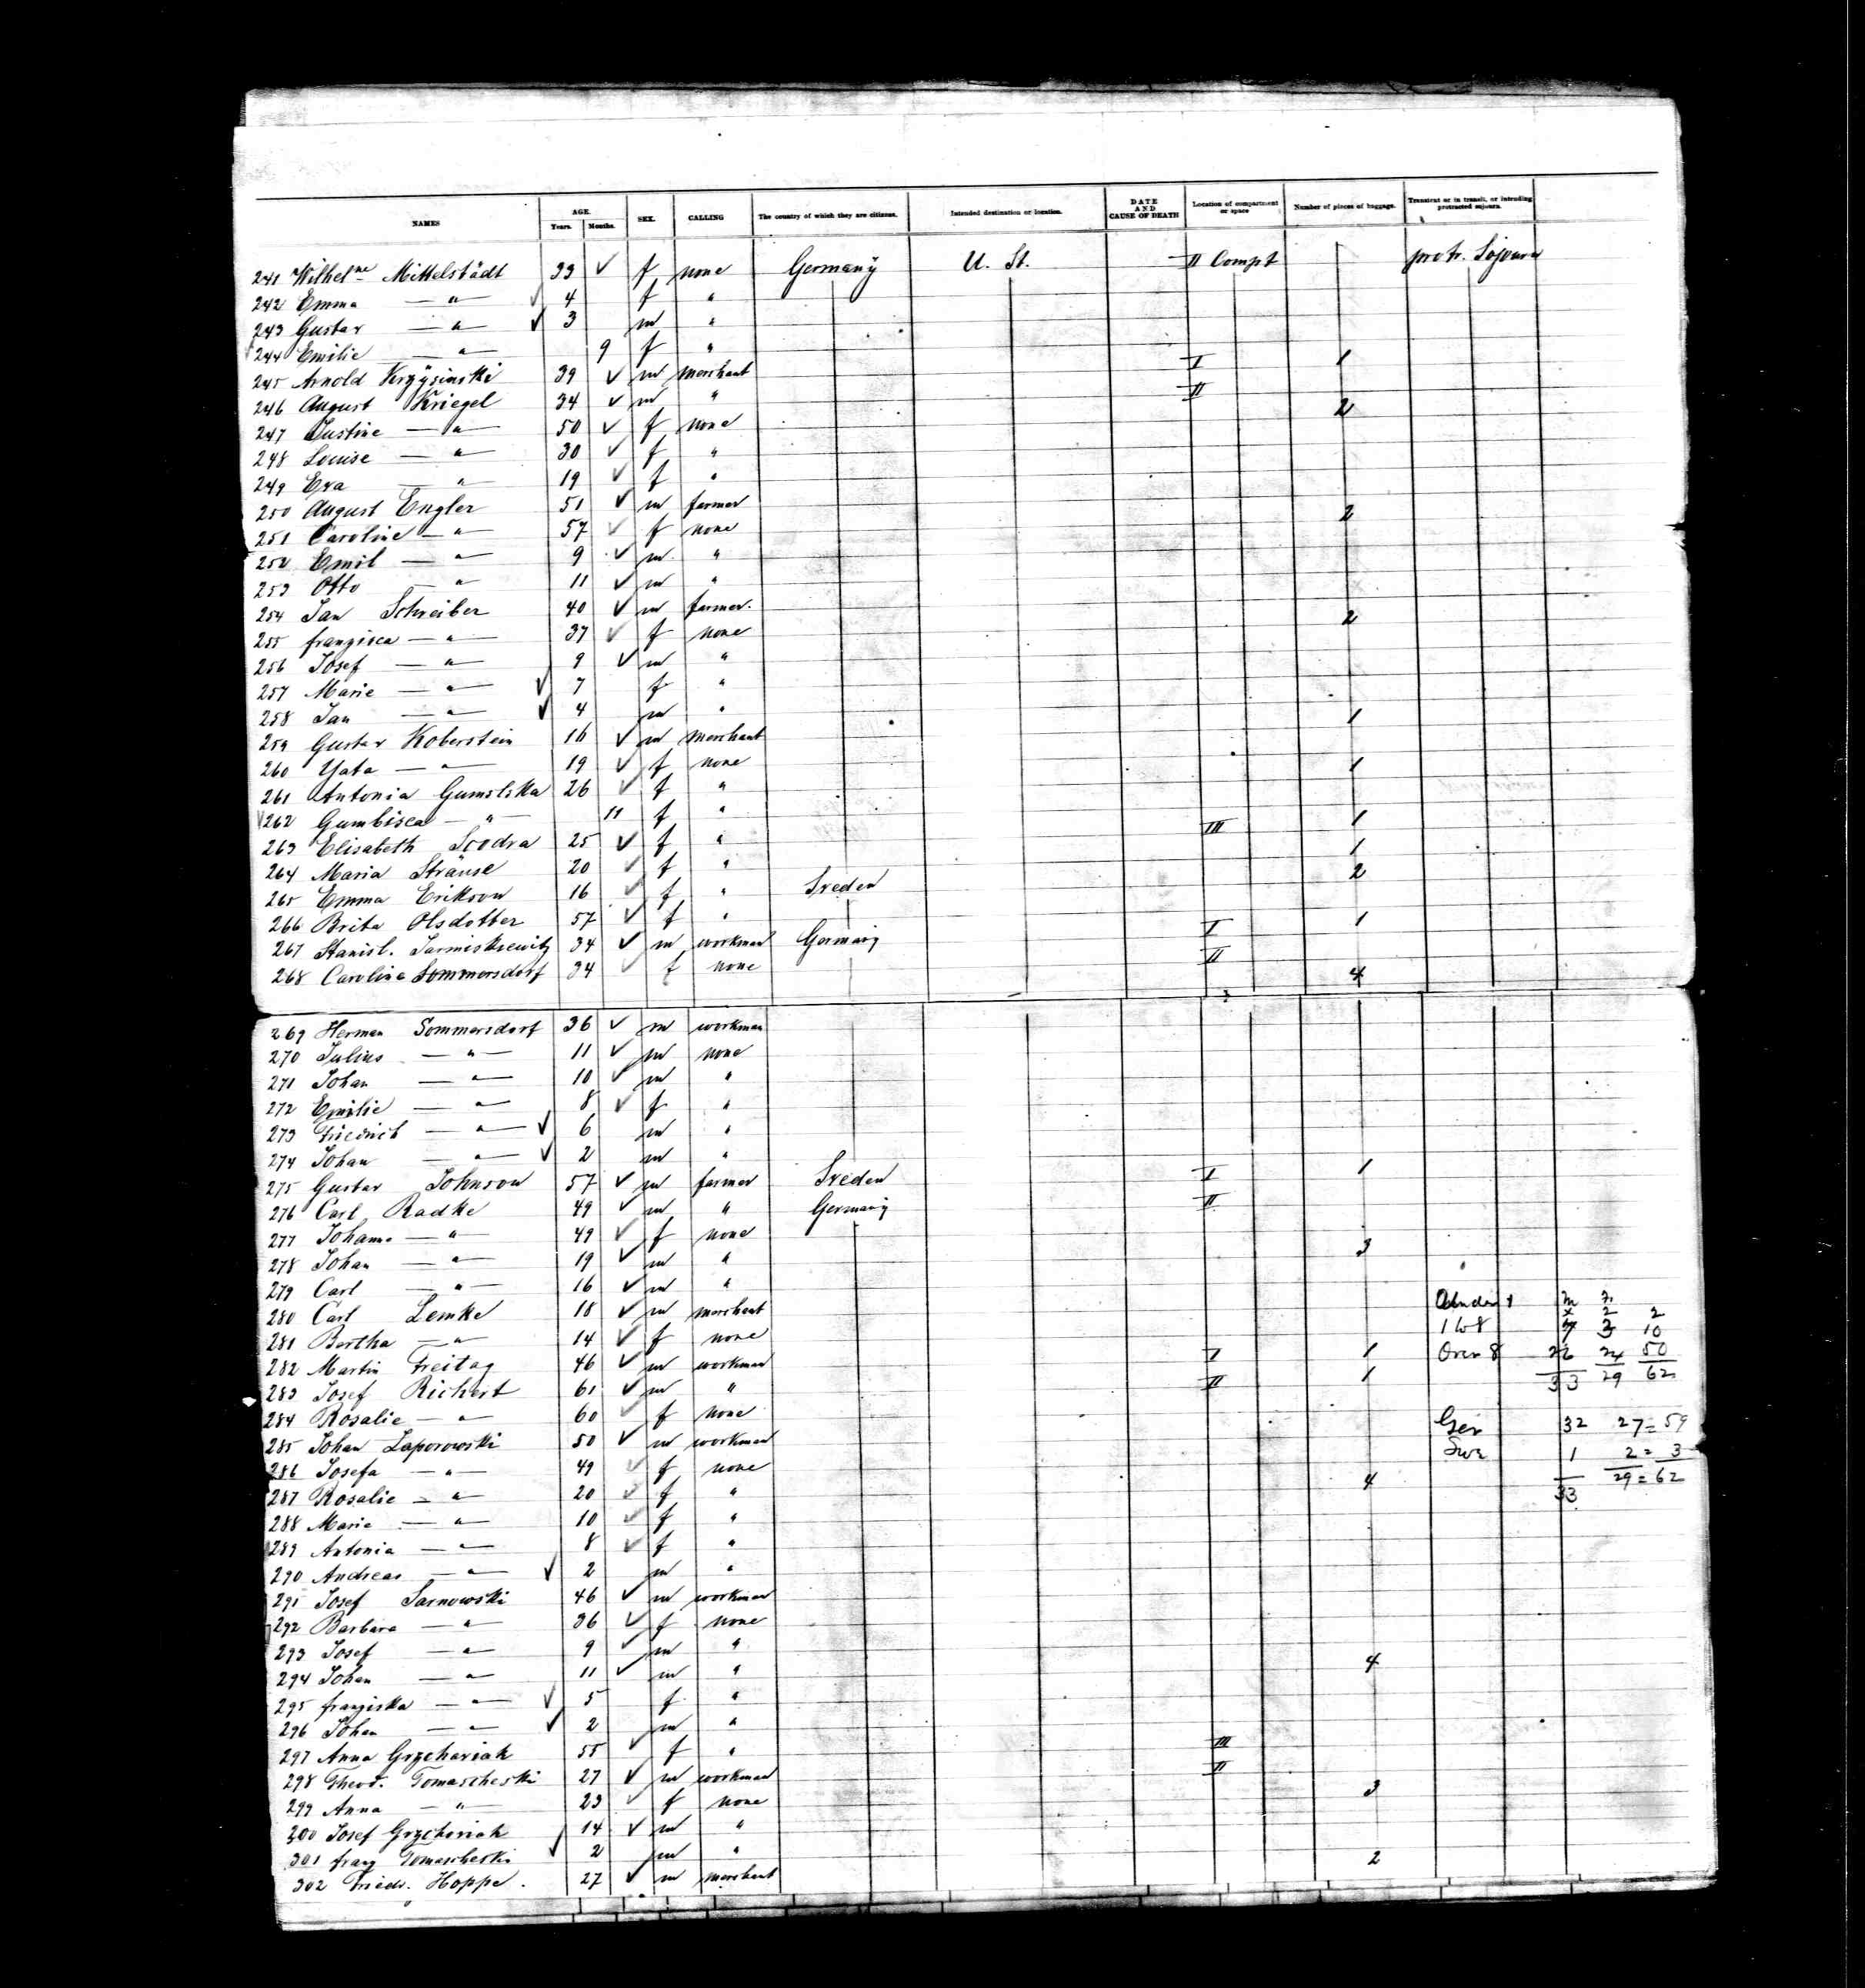 NAMES AGE. Years. Months. SEX. CALLING The country of which they are citizens. Intended destination or location. DATE AND CAUSE OF DEATH Location of compartment or space Number of pieces of baggage. Transient or in transit, or intending protracted sojourn.
241 Wilhelne Mittelstädt 33 ✓ f none Germany U. St. II Compt protr. Sojourn
242 Emma — " — ✓ 4 f "
243 Gustav — " — ✓ 3 m "
244 Emilie — " — 9 f "
245 Arnold 39 ✓ m merchant I 1
246 August Kriegel 34 ✓ m " II
247 Justine — " — 50 ✓ f none 2
248 Louise — " — 30 ✓ f "
249 Eva — " — 19 ✓ f "
250 August Engler 51 ✓ m farmer
251 Caroline — " — 57 ✓ f none 2
252 Emil — " — 9 ✓ m "
253 Otto — " — 11 ✓ m "
254 Jan Schreiber 40 ✓ m farmer.
255 franzisca — " — 37 ✓ f none 2
256 Josef — " — 9 ✓ m "
257 Marie — " — ✓ 7 f "
258 Jan — " — ✓ 4 m "
259 Gustav Koberstein 16 ✓ m merchant 1
260 Yata — " — 19 ✓ f none
261 Antonia Gumolska 26 ✓ f " 1
262 Gumbisca — " — 11 f "
263 Elisabeth Scodra 25 ✓ f " III 1
264 Maria Sträuse 20 ✓ f " 1
265 Emma Erikson 16 ✓ f " Sveden 2
266 Brita Olsdotter 57 ✓ f "
267 Stanisl. 34 ✓ m workman Germany I 1
268 Caroline Sommersdorf 34 ✓ f none II 4
269 Herman Sommersdorf 36 ✓ m workman
270 Julius — " — 11 ✓ m none
271 Johan — " — 10 ✓ m "
272 Emilie — " — 8 ✓ f "
273 Friedrich — " — ✓ 6 m "
274 Johan — " — ✓ 2 m "
275 Gustav Johnson 57 ✓ m farmer Sveden I 1
276 Carl Radke 49 ✓ m " Germany II
277 Johanne — " — 49 ✓ f none
278 Johan — " — 19 ✓ m " 3
279 Carl — " — 16 ✓ m "
280 Carl Lemke 18 ✓ m merchant
281 Bertha — " — 14 ✓ f none
282 Martin Freitag 46 ✓ m workman I 1
283 Josef Richert 61 ✓ m " II 1
284 Rosalie — " — 60 ✓ f none
285 Johan Laporowski 50 ✓ m workman
286 Josefa — " — 49 ✓ f none
287 Rosalie — " — 20 ✓ f " 4
288 Marie — " — 10 ✓ f "
289 Antonia — " — 8 ✓ f "
290 Andreas — " — ✓ 2 m "
291 Josef Sarnowski 46 ✓ m workman
292 Barbara — " — 36 ✓ f none
293 Josef — " — 9 ✓ m "
294 Johan — " — 11 ✓ m " 4
295 franziska — " — ✓ 5 f "
296 Johan — " — ✓ 2 m "
297 Anna Grzchariak 55 ✓ f " III
298 Theod. Tomascheski 27 ✓ m workman II
299 Anna — " — 23 ✓ f none 3
300 Josef Grzchariak 14 ✓ m "
301 franz Tomascheski ✓ 2 m "
302 Friedr. Hoppe. 27 ✓ m merchant 2
Under 1 x 2 2
1 to 8 7 3 10
Over 8 26 24 50
33 29 62
Ger 32 27 = 59
Swe 1 2 = 3
33 29 = 62